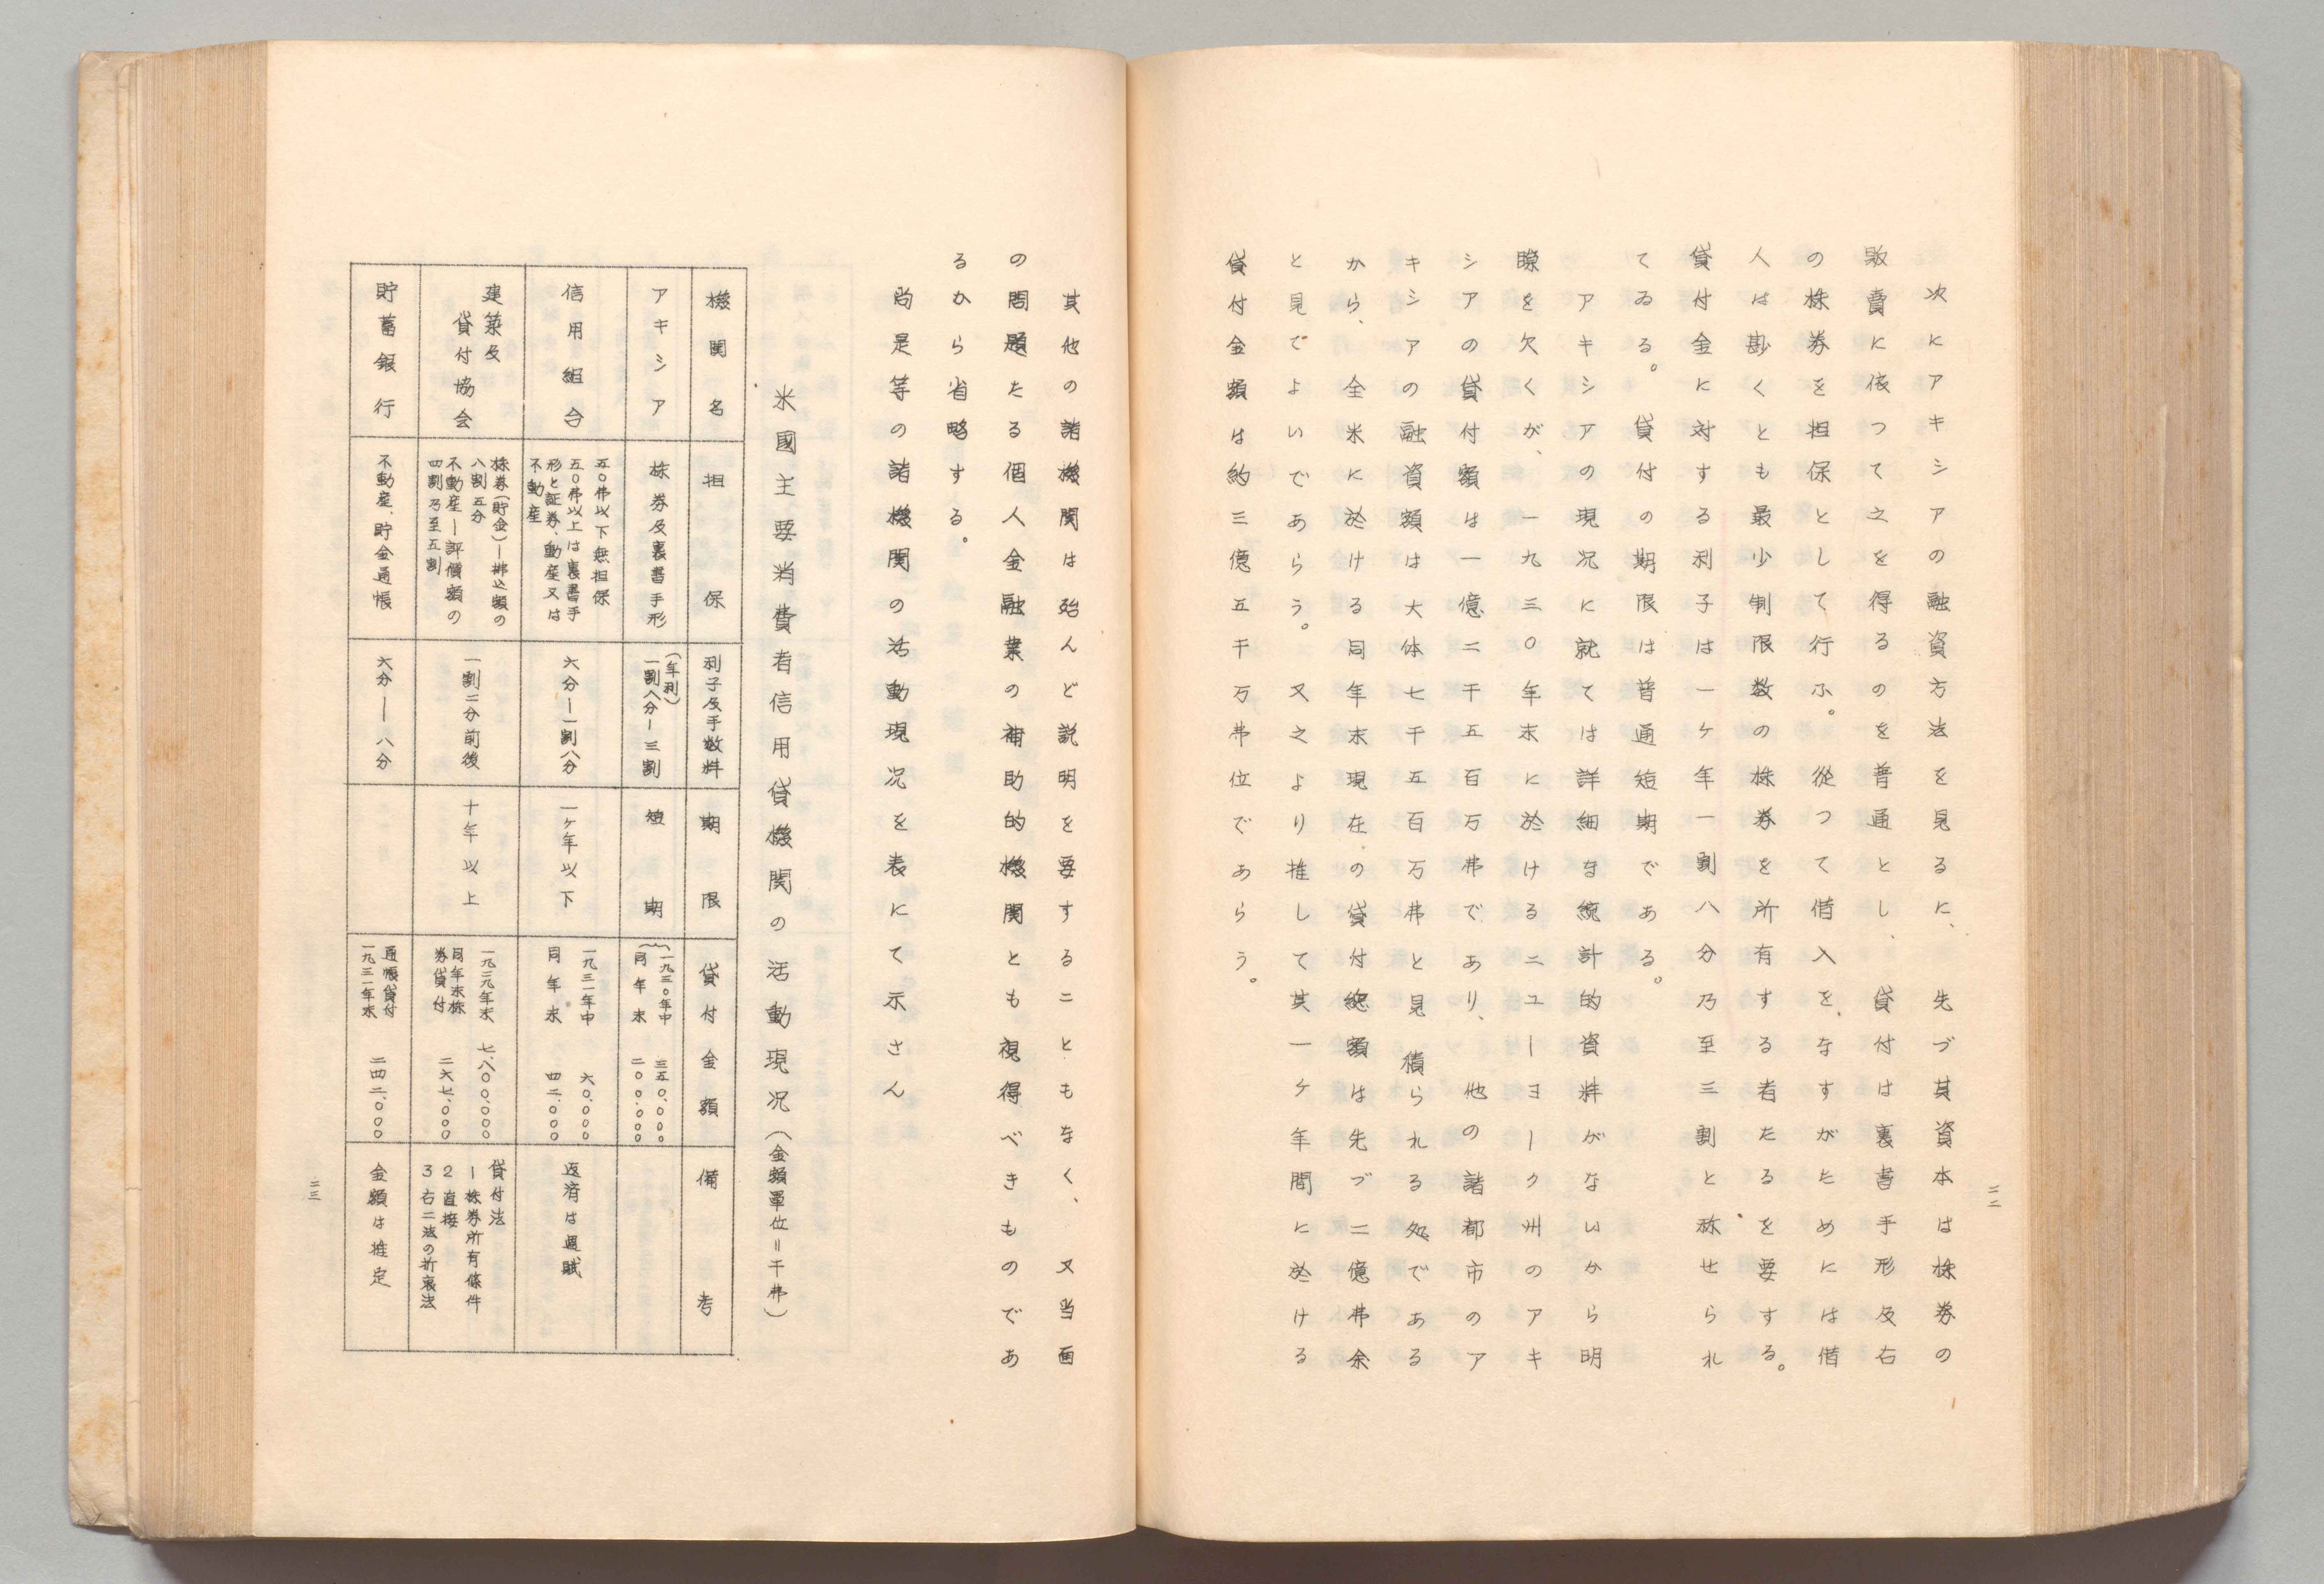 次にアキシアの融資方法を見るに、先づ其資本は株券の
販賣に依つて之を得るのを普通とし、貸付は裏書手形及右
の株券を担保として行ふ。從つて借入をなすがためには借
人は尠くとも最少制限数の株券を所有する者たるを要する。
貸付金に対する利子は一ケ年一割八分乃至三割と称せられ
てゐる。貸付の期限は普通短期である。
アキシアの現況に就ては詳細な統計的資料がないから明
瞭を欠くが、一九三〇年末に於けるニユーヨーク州のアキ
シアの貸付額は一億二千五百万弗であり、他の諸都市のア
キシアの融資額は大体七千五百万弗と見積られる処である
から、全米に於ける同年末現在の貸付総額は先づ二億弗余
と見てよいであらう。又之より推して其一ケ年間に於ける
貸付金額は約三億五千万弗位であらう。
二二
其他の諸機関は殆んど説明を要することもなく、又当面
の問題たる個人金融業の補助的機関とも視得べきものであ
るから省略する。
尚是等の諸機関の活動現況を表にて示さん
米國主要消費者信用貸機関の活動現況（金額單位＝千弗）
機関名
担保
利子及手数料
期限
貸付金額
備考
アキシア
株券及裏書手形
（年利）
一割八分—三割
短期
一九三〇年中 三五〇.〇〇〇
同年末 二〇〇.〇〇〇
信用組合
五〇弗以下無担保
五〇弗以上は裏書手
形と証券、動産又は
不動産
六分—一割八分
一ケ年以下
一九三一年中 六〇.〇〇〇
同年末 四二.〇〇〇
返済は週賦
建築及
貸付協会
株券（貯金）—拂込額の
八割五分
不動産—評價額の
四割乃至五割
一割二分前後
十年以上
一九二九年末 七.八〇〇.〇〇〇
同年末株
券貸付 二六七.〇〇〇
貸付法
1 株券所有條件
2 直接
3 右二法の折衷法
貯蓄銀行
不動産、貯金通帳
六分—八分
通帳貸付
一九三一年末 二四二.〇〇〇
金額は推定
二三